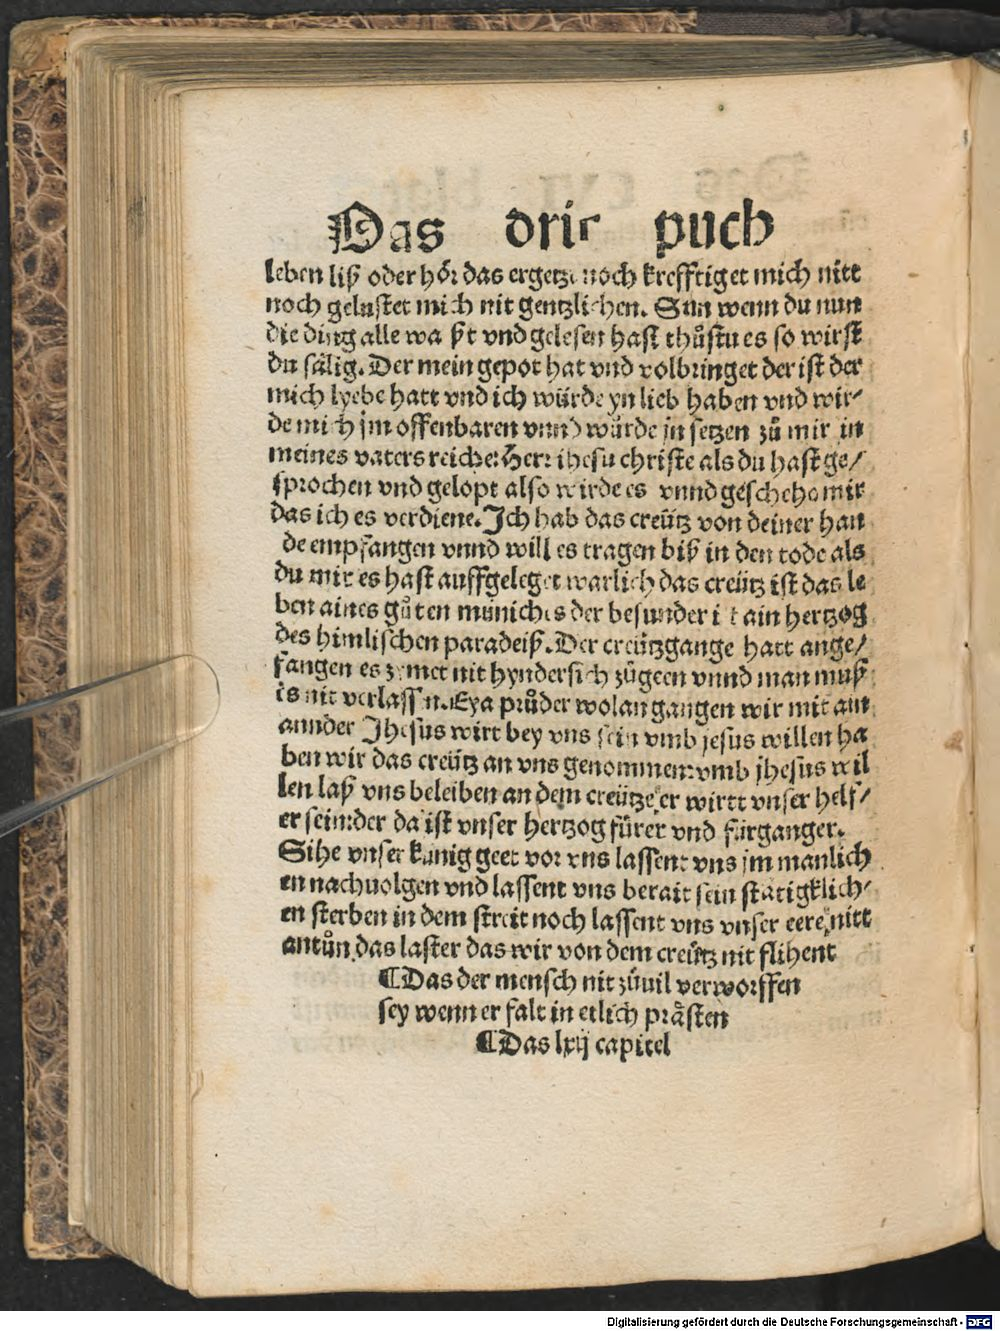 Das drit puch
leben liß oder hör das ergetzt noch krefftiget mich nitt
noch gelustet mich nit gentzlichen. Sun wenn du nun
die ding alle waißt vnd gelesen hast thůstu es so wirst
du sälig. Der mein gepot hat vnd volbringet der ist der
mich lyebe hatt vnd ich würde yn lieb haben vnd wir⸗
de mich jm offenbaren vnnd würde jn setzen zů mir in
meines vaters reiche: Herr ihesu christe als du hast ge⸗
sprochen vnd gelopt also wirde es vnnd geschehe mir
das ich es verdiene. Ich hab das creütz von deiner han
de empfangen vnnd will es tragen biß in den tode als
du mir es hast auffgeleget warlich das creütz ist das le
ben aines gůten müniches der besunder ist ain hertzog
des himlischen paradeiß. Der creützgange hatt ange⸗
fangen es zymet nit hyndersich zůgeen vnnd man muß
es nit verlassen. Eya průder wolan gangen wir mit ain
annder Jhesus wirt bey vns sein vmb jesus willen ha
ben wir das creütz an vns genommen: vmb jhesus wil
len laß vns beleiben an dem creütze er wirtt vnser helf⸗
er sein: der da ist vnser hertzog fürer vnd fürganger.
Sihe vnser künig geet vor vns lassent vns jm manlich
en nachuolgen vnd lassent vns berait sein stätigklich⸗
en sterben in dem streit noch lassent vns vnser eere nitt
antůn das laster das wir von dem creütz nit flihent
¶Das der mensch nit zůuil verworffen
sey wenn er falt in etlich prästen
¶Das lxij capitel
Digitalisierung gefördert durch die Deutsche Forschungsgemeinschaft - DFG